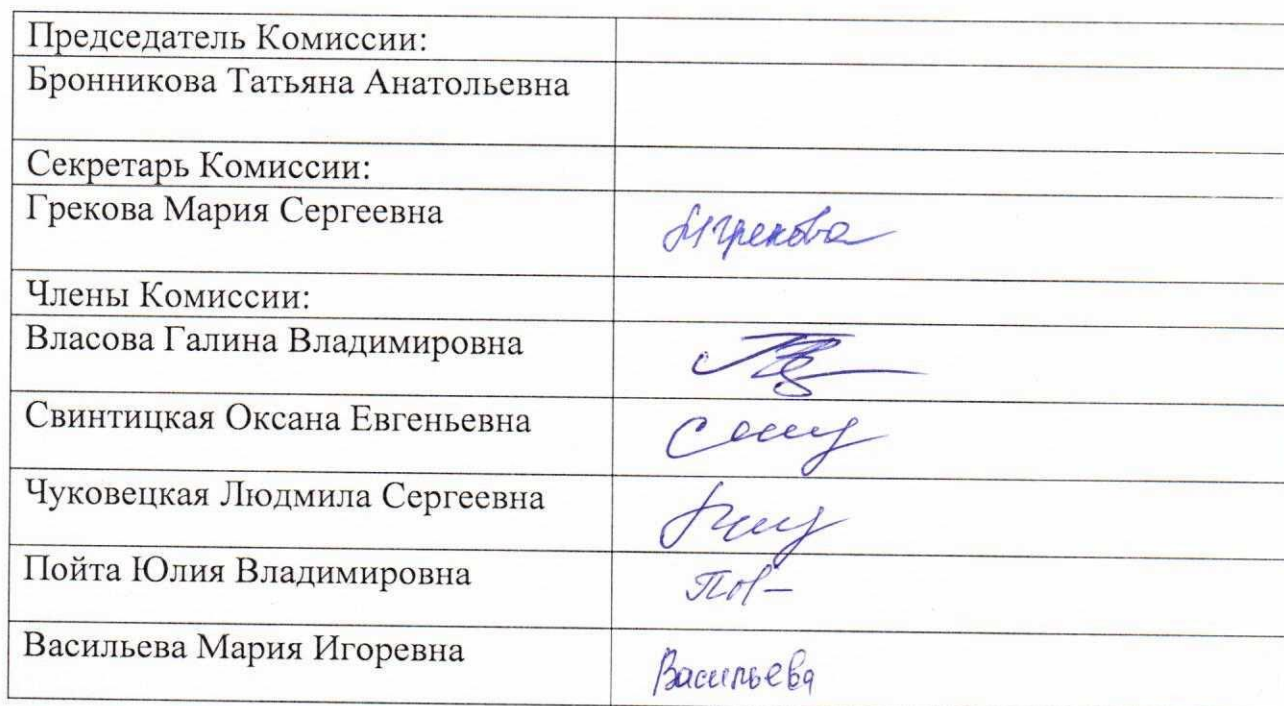 Председатель Комиссии:
Бронникова Татьяна Анатольевна
Секретарь Комиссии:
Грекова Мария Сергеевна
Члены Комиссии:
Власова Галина Владимировна
Свинтицкая Оксана Евгеньевна
Чуковецкая Людмила Сергеевна
Пойта Юлия Владимировна
Васильева Мария Игоревна Васильева